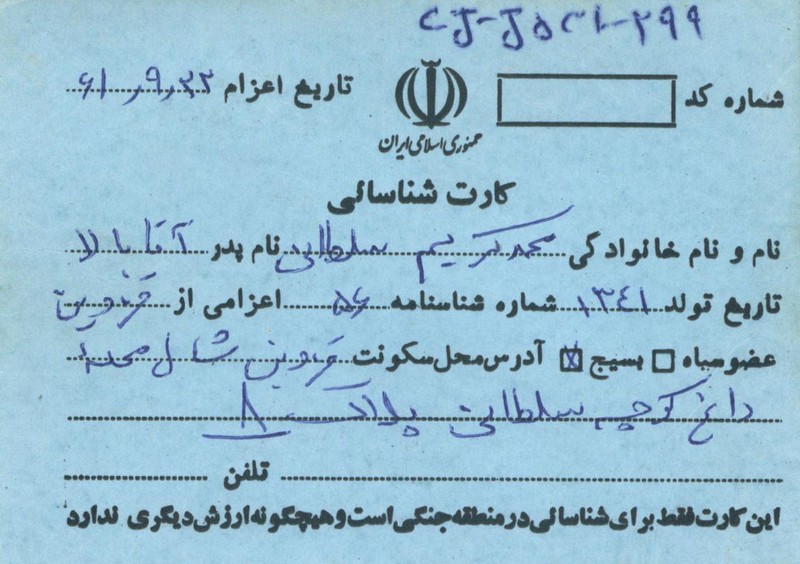 CJ-J5C1-299
شماره کد
جمهوری اسلامی ایران
تاریخ اعزام ۶۱٫۹٫۲۲
کارت شناسائی
نام و نام خانوادگی محمدکریم سلطانی نام پدر آقابالا
تاریخ تولد ۱۳۴۱ شماره شناسنامه ۵۶ اعزامی از قزوین
عضو سپاه بسیج آدرس محل سکونت قزوین شال محله
داغ کوچه سلطانی پلاک ۸
تلفن
این کارت فقط برای شناسائی در منطقه جنگی است و هیچگونه ارزش دیگری ندارد